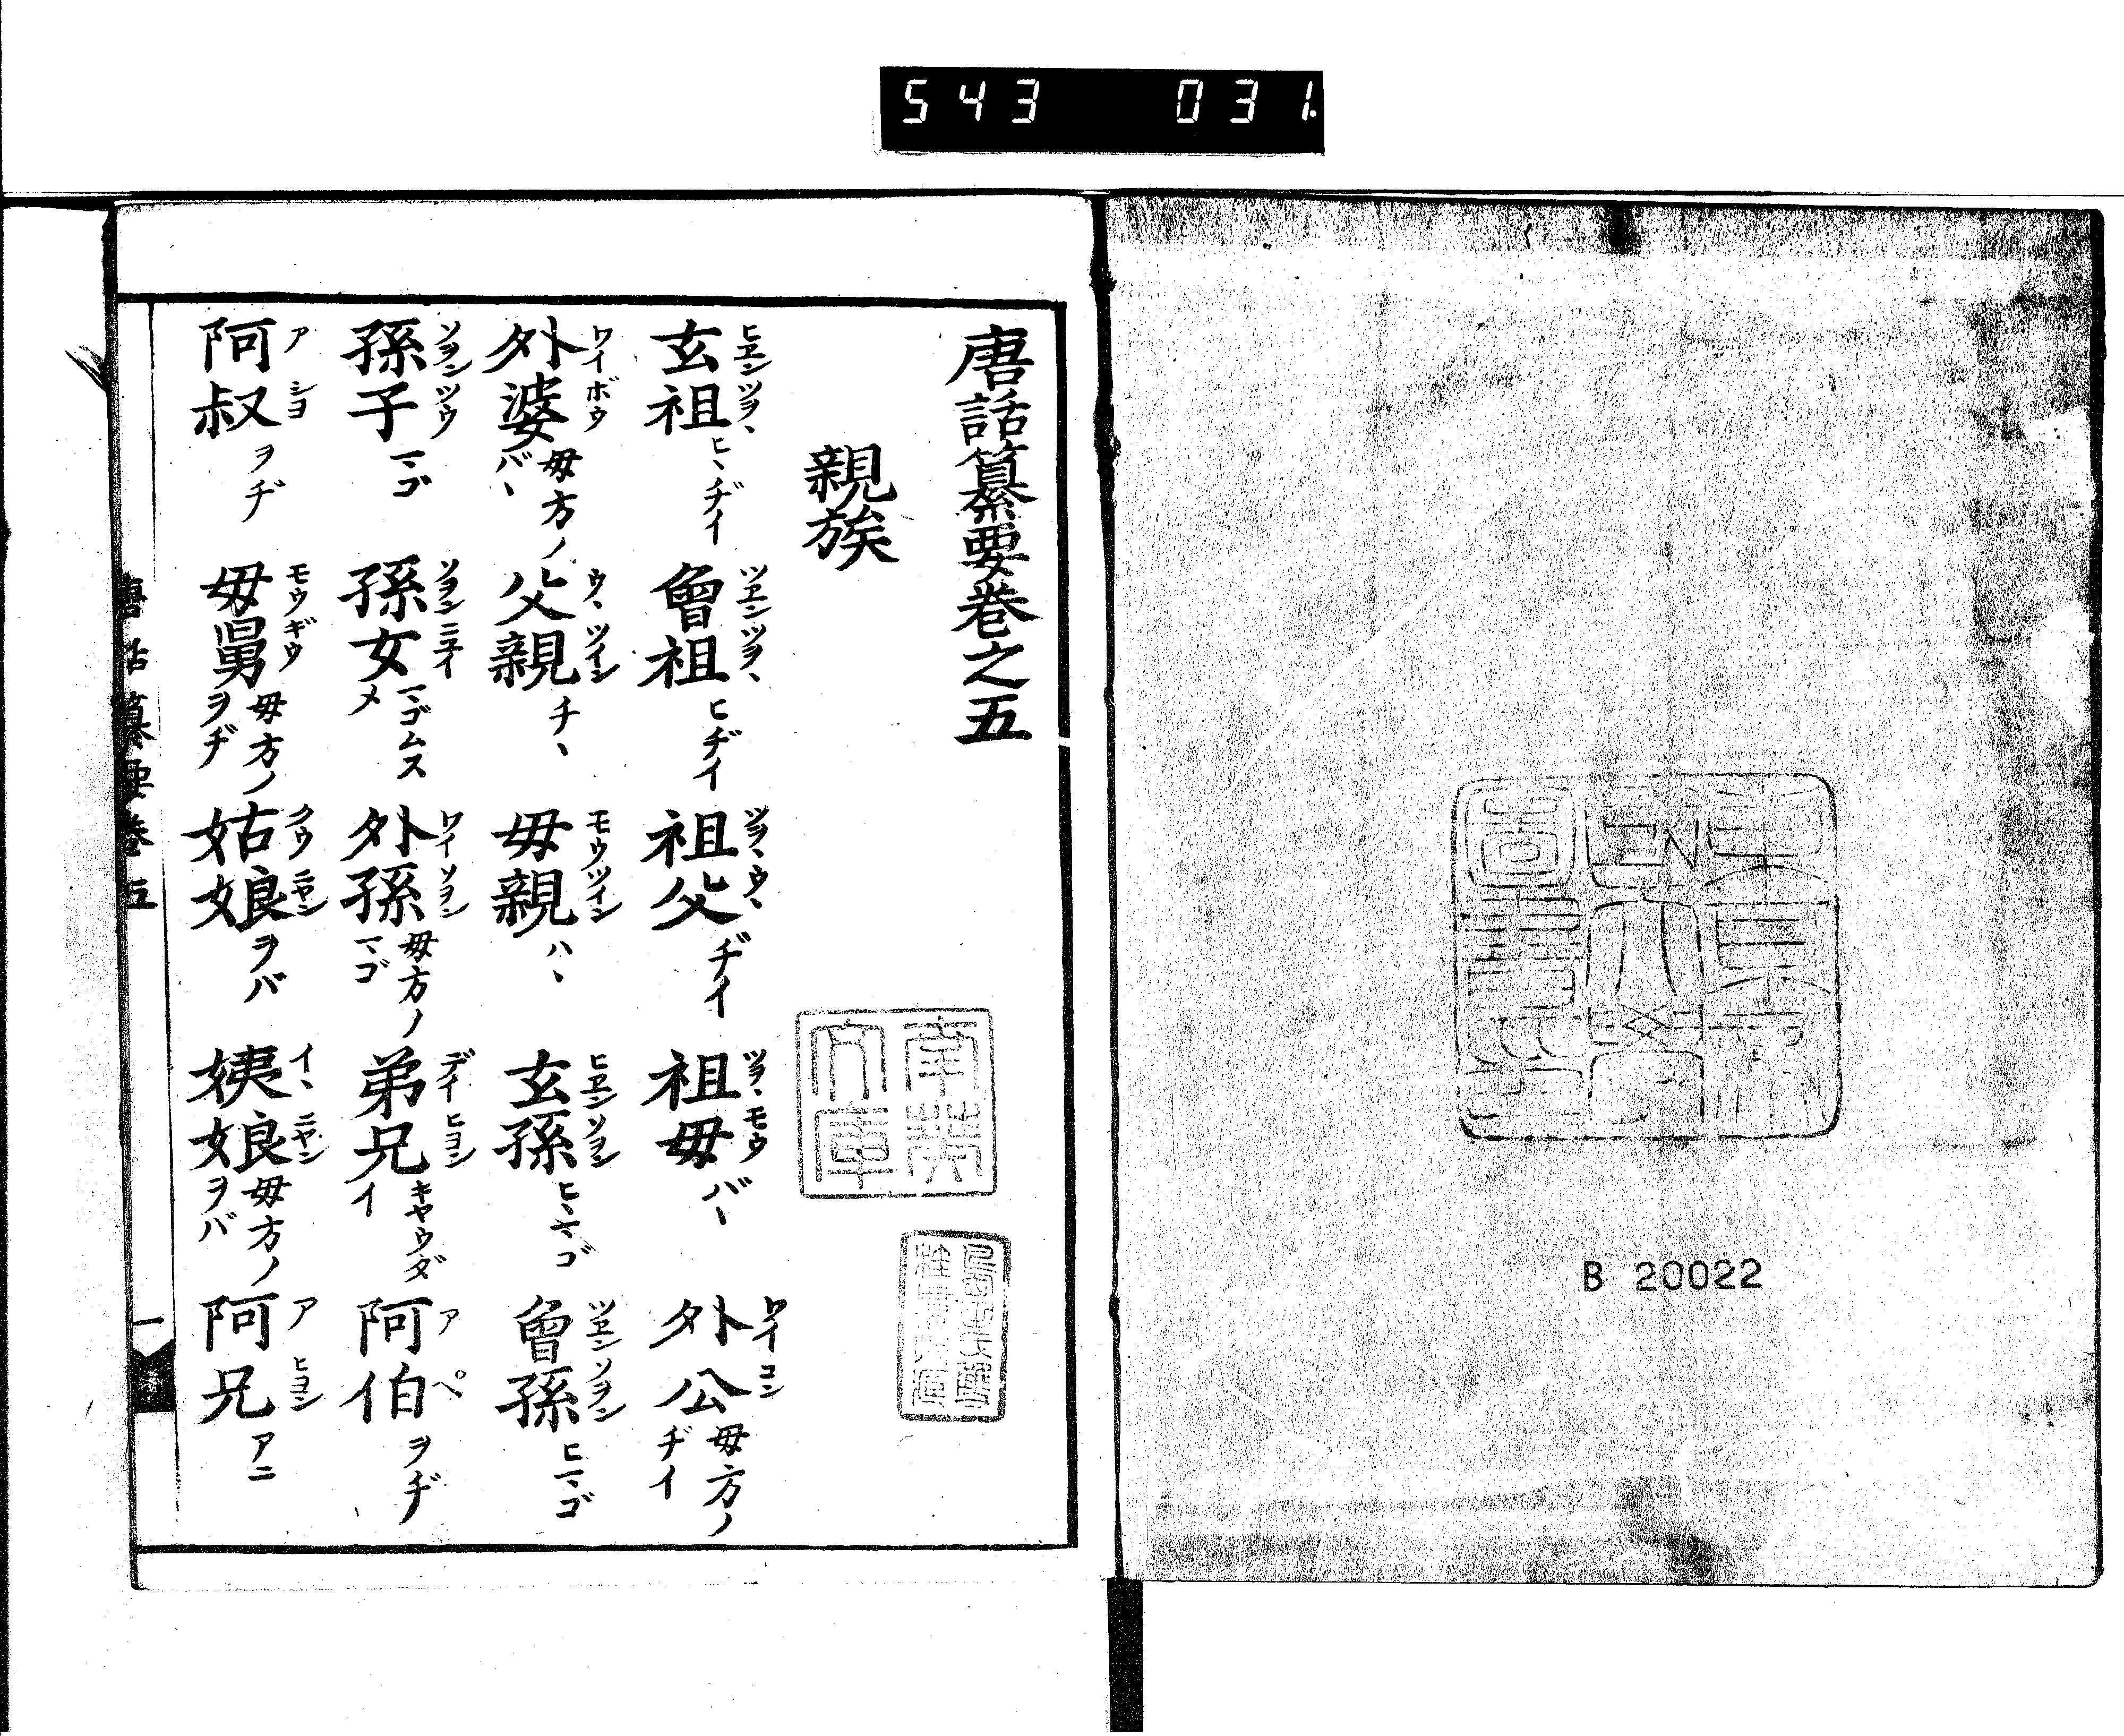 543 031
唐話纂要巻之五
親族
玄祖 ヒヱンツヲヽ ヒヽヂイ 曾祖 ツヱンツヲヽ ヒヂイ 祖父 ツヲヽウヽ ヂイ 祖母 ツヲヽモウ バヽ 外公 ワイコン 母方ノヂイ
外婆 ワイボウ 母方ノバヽ 父親 ウヽツイン チヽ 母親 モウツイン ハヽ 玄孫 ヒヱンソヲン ヒヽマゴ 曾孫 ツヱンソヲン ヒマゴ
孫子 ソヲンツウ マゴ 孫女 ソヲンニイ マゴムスメ 外孫 ワイソヲン 母方ノマゴ 弟兄 デイヒヨン キヤウダイ 阿伯 アペ ヲヂ
阿叔 アシヨ ヲヂ 母舅 モウギウ 母方ノヲヂ 姑娘 クウニヤン ヲバ 姨娘 イヽニヤン 母方ノヲバ 阿兄 アヒヨン アニ
唐話纂要巻五
一
文庫
B 20022